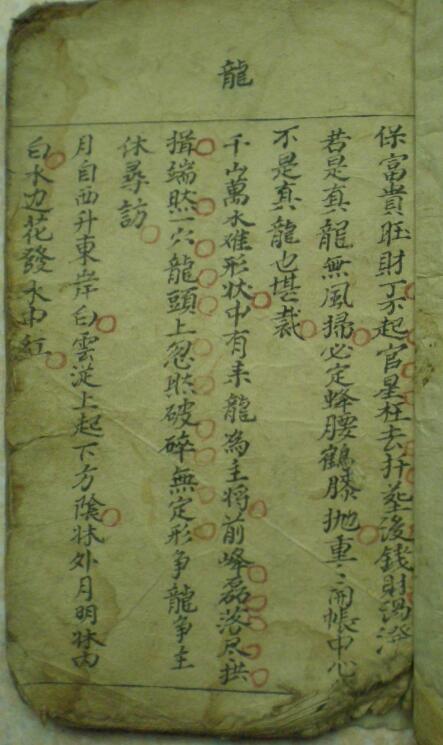 龍
保富貴旺財丁不起官星枉去扦塟後錢財渴
若是真龍無風掃必定蜂腰鶴膝抛重〻開帳中心
不是真龍也堪裁
千山萬水难形状中有来龍為主将前峰磊落尽拱
揖端然一穴龍頭上忽然破碎無定形争龍争主
休尋訪
月自西升東岸白雲從上起下方陰林外月明林内
白水边花發水中紅